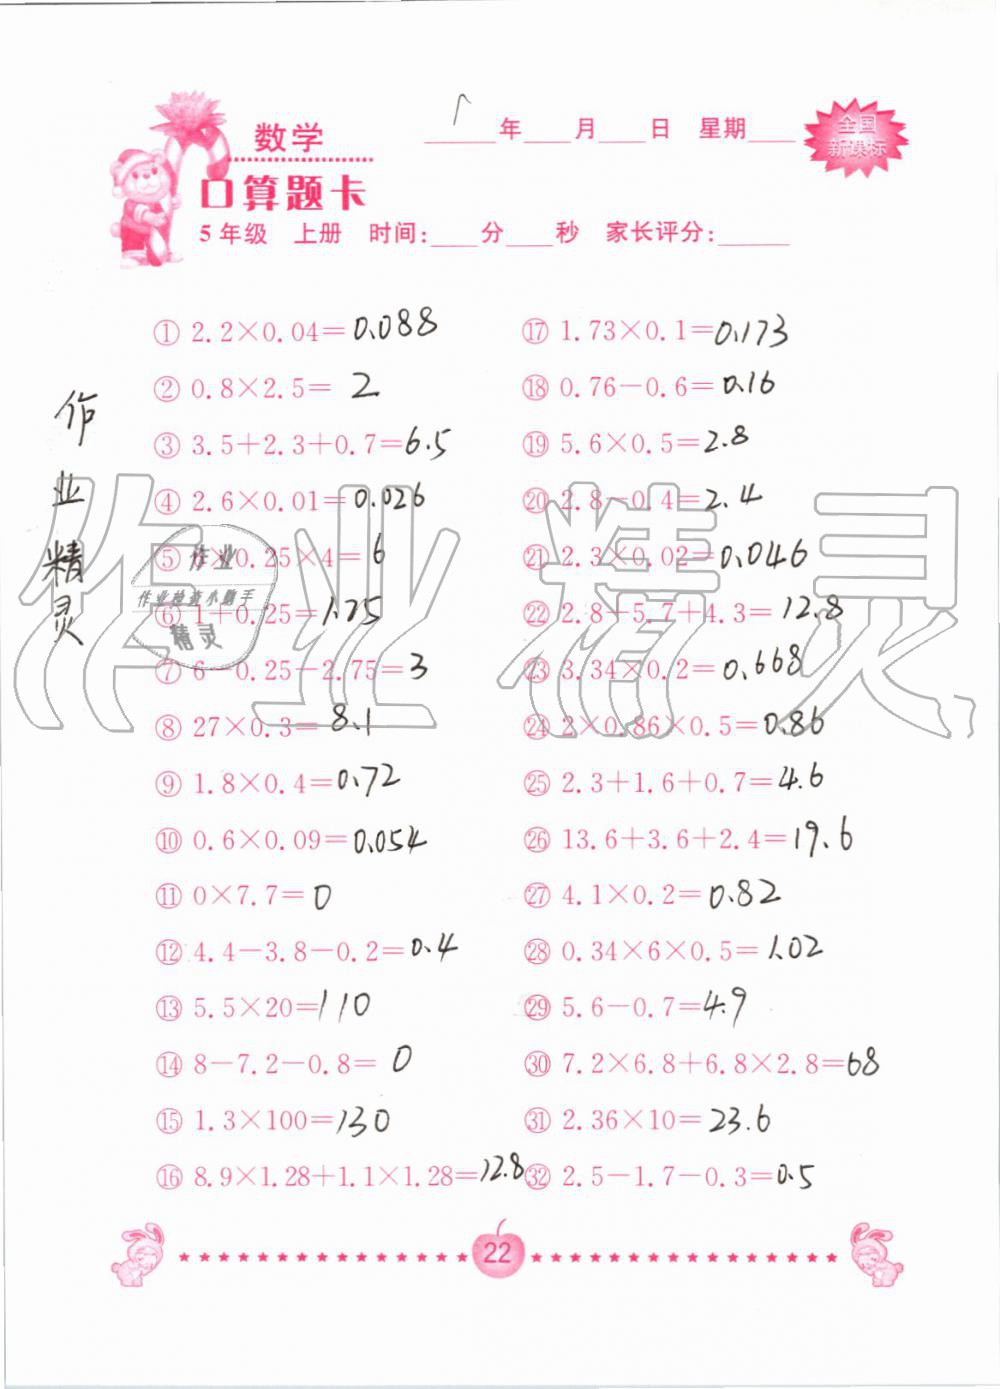 年 月 日 星期
全国
新课标
数学
口算题卡
5年级 上册 时间: 分 秒 家长评分:
① 2.2×0.04=0.088
② 0.8×2.5= 2
③ 3.5+2.3+0.7=6.5
④ 2.6×0.01=0.026
⑤ ×0.25×4= 6
⑥ 1+0.25=1.25
⑦ 6-0.25-2.75=3
⑧ 27×0.3= 8.1
⑨ 1.8×0.4=0.72
⑩ 0.6×0.09=0.054
⑪ 0×7.7=0
⑫ 4.4-3.8-0.2=0.4
⑬ 5.5×20=110
⑭ 8-7.2-0.8= 0
⑮ 1.3×100=130
⑯ 8.9×1.28+1.1×1.28=12.8
⑰ 1.73×0.1=0.173
⑱ 0.76-0.6=0.16
⑲ 5.6×0.5=2.8
⑳ 2.8-0.4=2.4
㉑ 2.3×0.02=0.046
㉒ 2.8+5.7+4.3=12.8
㉓ 3.34×0.2=0.668
㉔ 2×0.86×0.5=0.86
㉕ 2.3+1.6+0.7=4.6
㉖ 13.6+3.6+2.4=19.6
㉗ 4.1×0.2=0.82
㉘ 0.34×6×0.5=1.02
㉙ 5.6-0.7=4.9
㉚ 7.2×6.8+6.8×2.8=68
㉛ 2.36×10=23.6
㉜ 2.5-1.7-0.3=0.5
作业精灵
作业精灵
作业
作业检查小助手
精灵
22